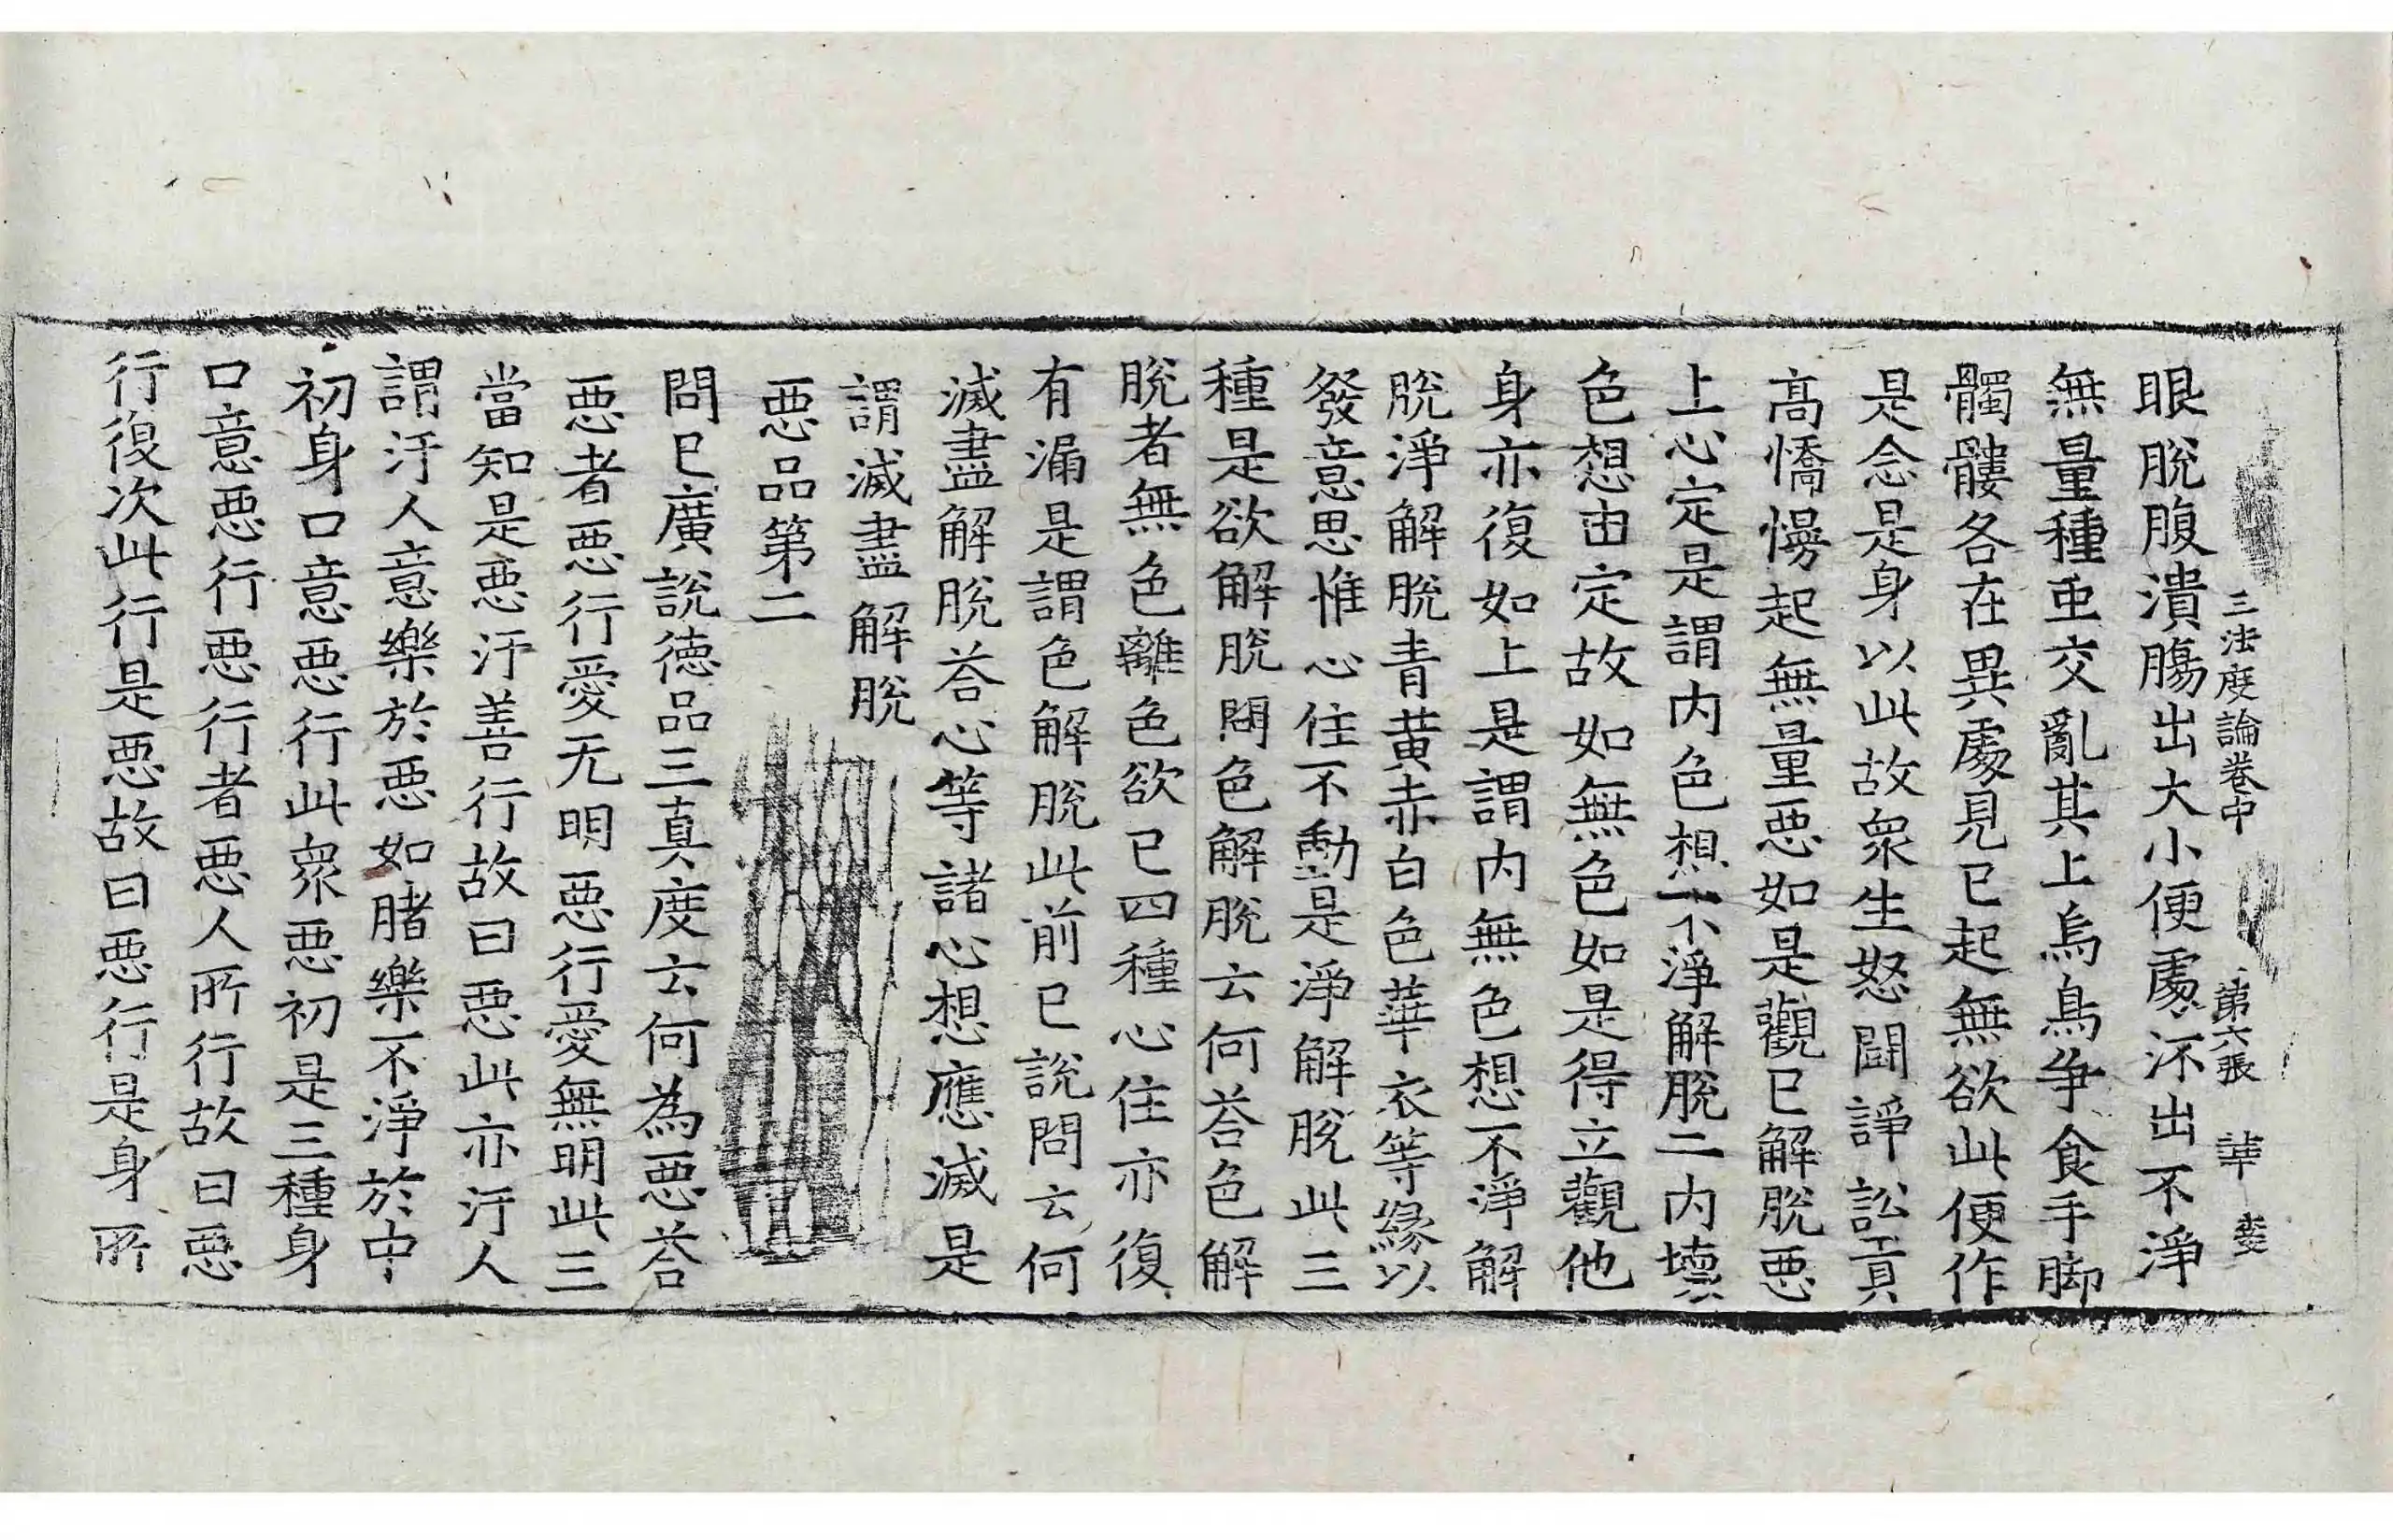 三法度論卷中 第六張 華
眼脫腹潰膓出大小便處泝出不淨
無量種䖝交亂其上烏鳥爭食手脚
髑髏各在異處見已起無欲此便作
是念是身以此故衆生怒鬪諍訟貢
髙憍慢起無量惡如是觀已解脫惡
上心定是謂内色想不淨解脫二内壞
色想由定故如無色如是得立觀他
身亦復如上是謂内無色想不淨解
脫淨解脫青黄赤白色華衣等緣以
發意思惟心住不動是淨解脫此三
種是欲解脫問色解脫云何荅色解
脫者無色離色欲已四種心住亦復
有漏是謂色解脫此前已說問云何
滅盡解脫荅心等諸心想應滅是
謂滅盡解脫
惡品第二
問已廣說德品三真度云何為惡荅
惡者惡行愛无明惡行愛無明此三
當知是惡汙善行故曰惡此亦汙人
謂汙人意樂於惡如豬樂不淨於中
初身口意惡行此衆惡初是三種身
口意惡行惡行者惡人所行故曰惡
行復次此行是惡故曰惡行是身所